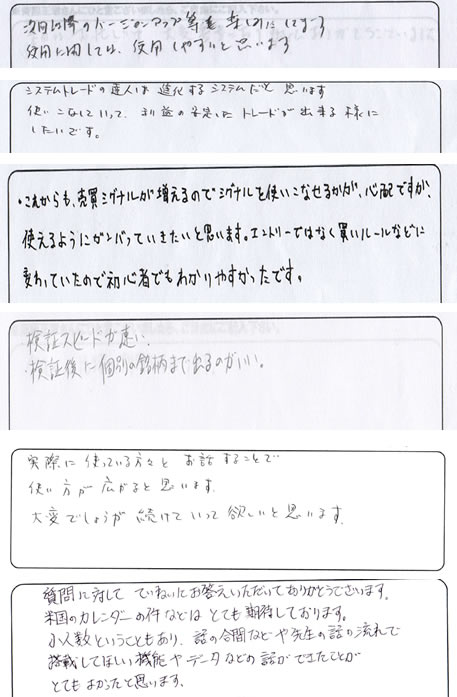 次回以降のバージョンアップ等を楽しみにしています
使用に関しては、使用しやすいと思います
システムトレードの達人は進化するシステムだと思います
使いこなしていって、利益の安定したトレードが出来る様に
したいです。
・これからも、売買シグナルが増えるのでシグナルを使いこなせるかが、心配ですが、
使えるようにガンバっていきたいと思います。エントリーではなく買いルールなどに
変わっていたので初心者でもわかりやすかったです。
・検証スピードが速い、
・検証後に個別の銘柄まで出るのがいい。
実際に使っている方々とお話することで
使い方が広がると思います。
大変でしょうが続けていって欲しいと思います。
質問に対してていねいにお答えいただいてありがとうございます。
米国のカレンダーの件などはとても期待しております。
小人数ということもあり、話の合間などや先生の話の流れで
搭載してほしい機能やデータなどの話ができたことが
とてもよかったと思います。